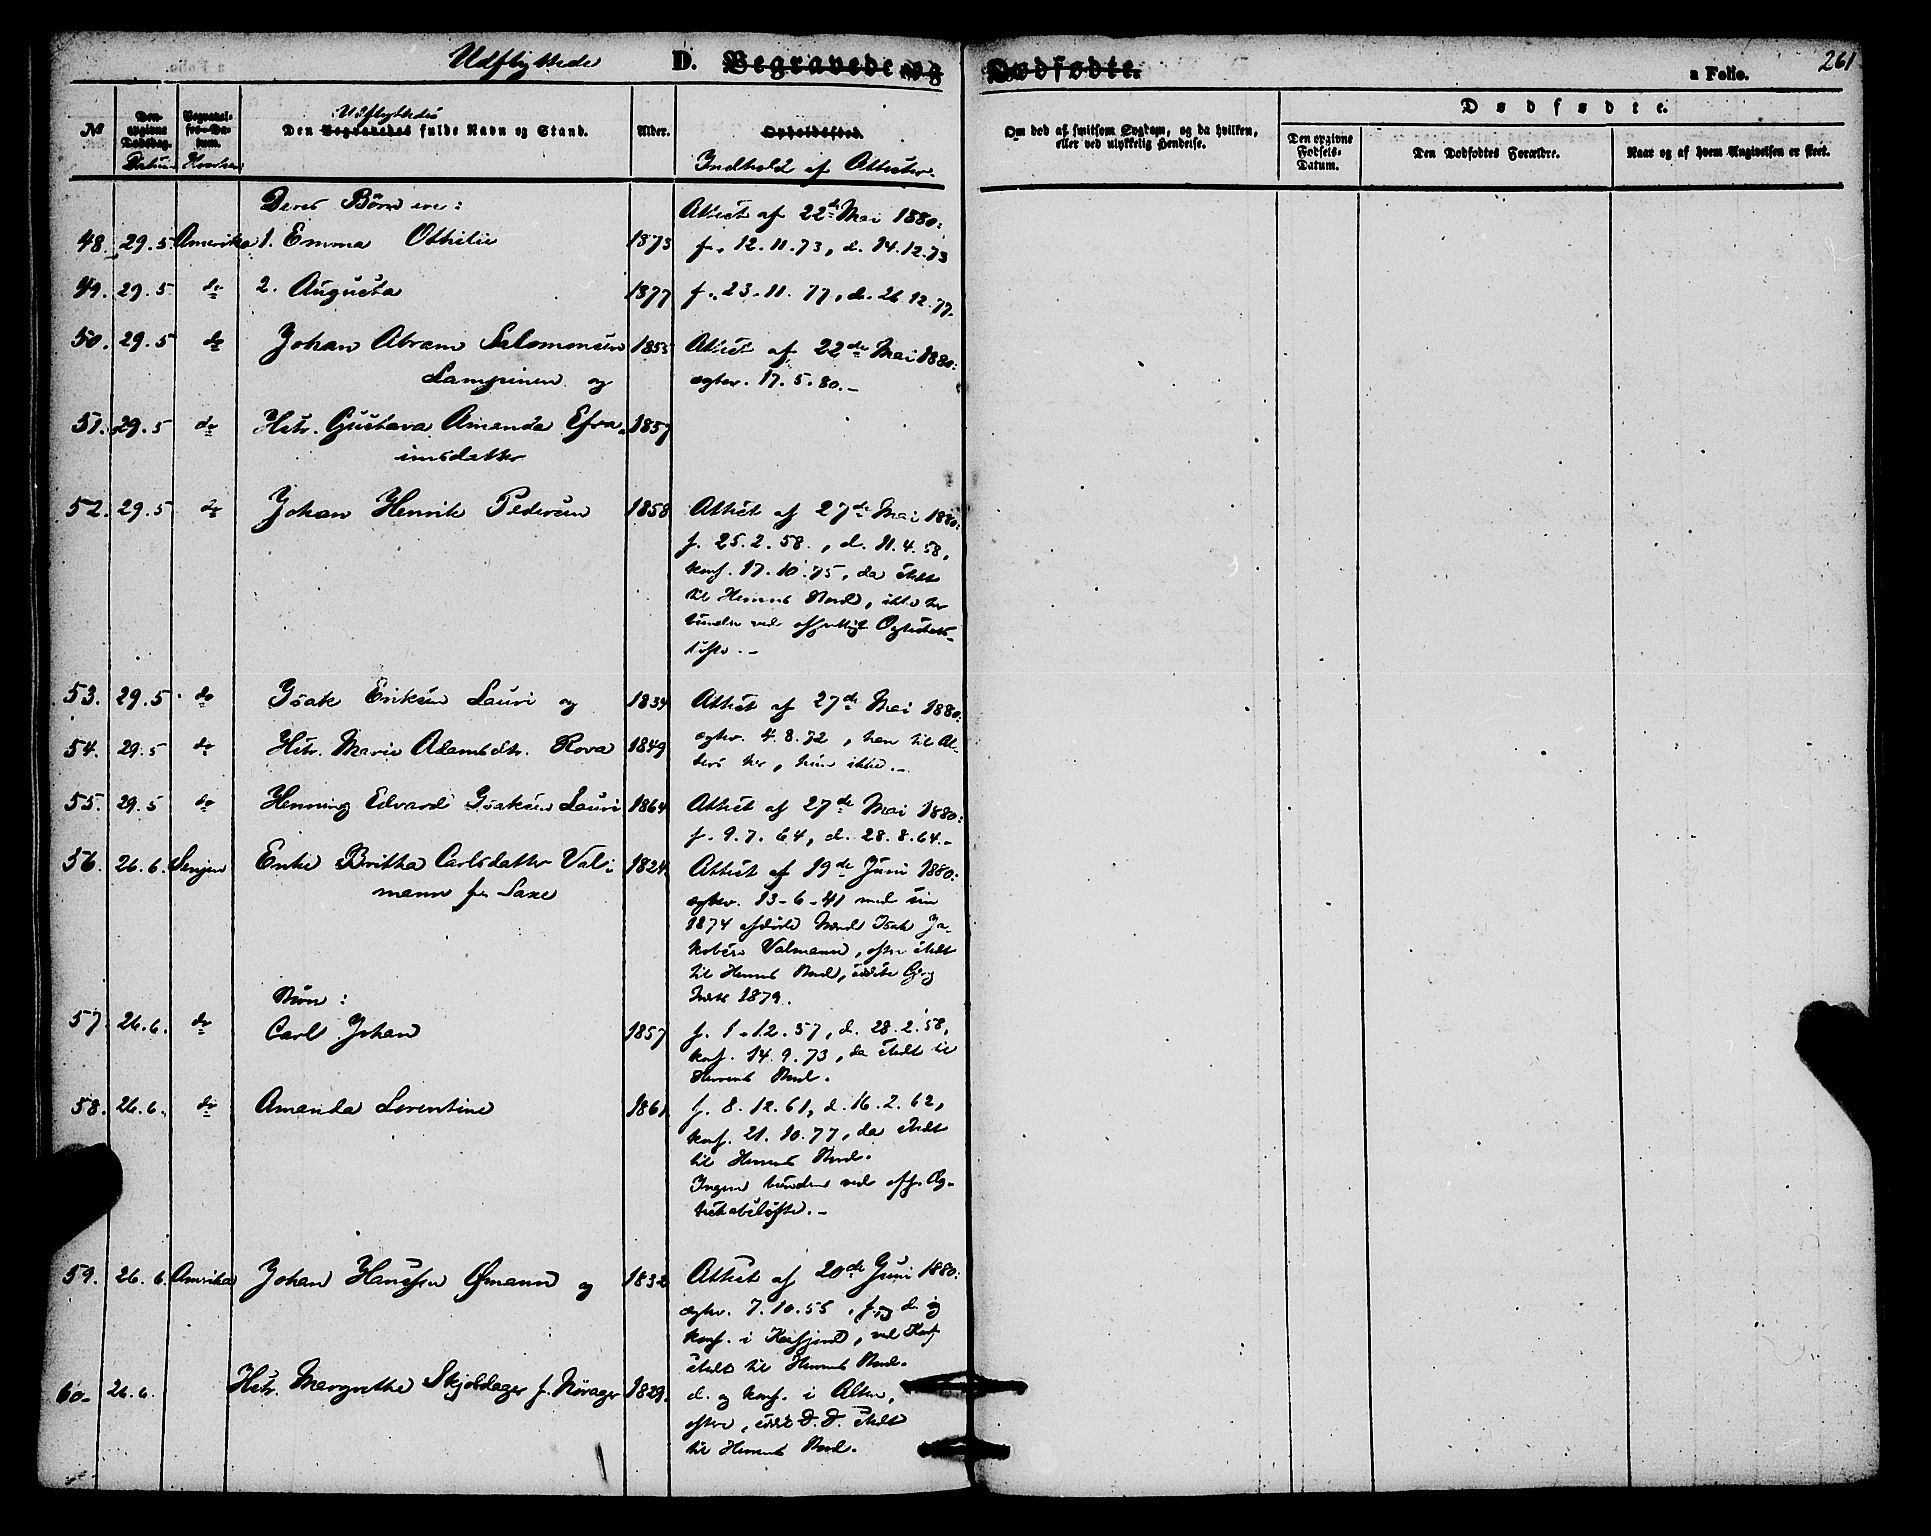 Udflyttede D. Begravede og Dødfødte. a Folio. 261
Dødfødte.
No
Den opgivne Dødsdag. Datum
Begravelses-Datum. Hvorhen
Udflyttedes
Den Begravedes fulde Navn og Stand.
Alder.
Opholdssted.
Indhold af Attester.
Om død af smitsom Sygdom, og da hvilken, eller ved ulykkelig Hendelse.
Den opgivne Fødsels-Datum.
Den Dødfødtes Forældre.
Naar og af hvem Angivelsen er skeet.
Deres Børn ere: Attest af 22de Mai 1880:
48. 29.5. Amerika 1. Emma Othilie 1873 f. 12.11.73, d. 14.12.73
49. 29.5. do 2. Augusta 1877 f. 23.11.77, d. 26.12.77.
50. 29.5 do Johan Abram Salomonsen 1855 Attest af 22de Mai 1880:
Lampinen og ægtev. 17.5.80.-
51. 29.5 do Hstr. Gustava Amanda Efra- 1857
imsdatter
52. 29.5 do Johan Henrik Pedersen 1858 Attest af 27de Mai 1880:
f. 25.2.58., d. 11.4.58,
konf. 17.10.75, da stedt
til Herrens Bord, ikke her
bunden ved offentligt Ægteskabs-
løfte.-
53. 29.5. do Isak Eriksen Lauri og 1834 Attest af 27de Mai 1880:
54. 29.5 do Hstr. Marie Adamsdtr. Rova 1849 ægtev. 4.8.72, han til Al-
ters her, hun ikke.-
55. 29.5 do Henning Edvard Isaksen Lauri 1864 Attest af 27de Mai 1880:
f. 9.7.64, d. 28.8.64.-
56. 26.6. Senjen Enke Britha Carlsdatter Val- 1824 Attest af 19de Juni 1880:
mann f. Saxe ægtev. 13-6-41 med sin
1874 afdøde Mand Isak Ja-
kobsen Valmann, ofte stedt
til Herrens Bord, sidste Gang
Høst 1879.
Børn:
57. 26.6. do Carl Johan 1857 f. 1.12.57, d. 28.2.58,
konf. 14.9.73, da stedt til
Herrens Bord.
58. 26.6. do Amanda Lorentine 1861 f. 8.12.61, d. 16.2.62,
konf. 21.10.77, da stedt
til Herrens Bord.
Ingen bunden ved off. Æg-
teskabsløfte.-
59. 26.6. Amerika Johan Hanssen Ømann og 1832 Attest af 20de Juni 1880:
ægtev. 7.10.55, f. og d. og
konf. i Kaafjord, ved Konf.
stedt til Herrens Bord.
60. 26.6. Hstr. Margrethe Skjoldager f. Norager 1829. d. og konf. i Alten,
ofte, stedt
til Herrens Bord.